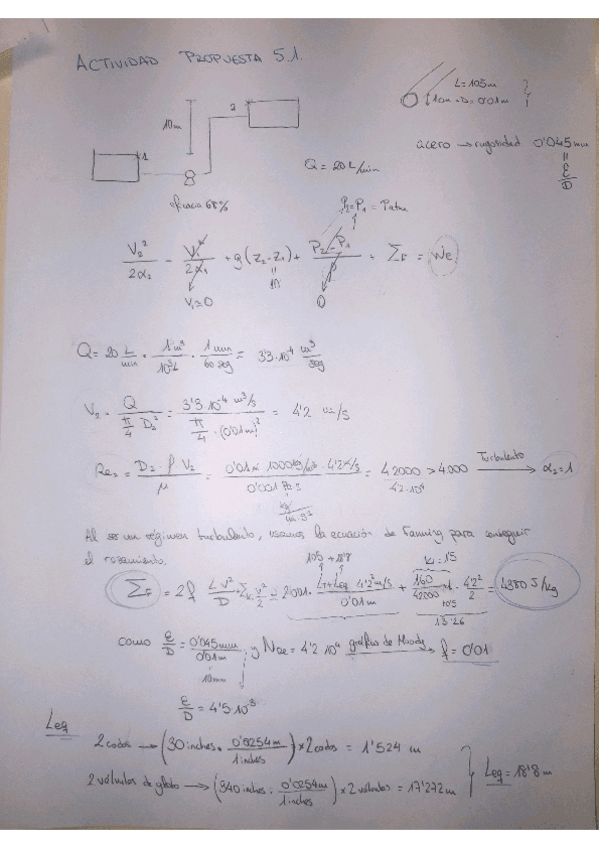 ACTIVIDAD PROPUESTA 5.1.
L = 105m
1cm = D = 0'01m
10m
2
1
Q = 20 L/min
acero → rugosidad 0'045mm
ε/D
eficacia 68%
P₂ = P₁ = Patm
V₂²/2α₂ - V₁²/2α₁ + g(z₂-z₁) + (P₂-P₁)/ρ + Σ_F = We
V₁ ≅ 0
10
0
Q = 20 L/min · 1m³/10³L · 1min/60seg = 3'3·10⁻⁴ m³/seg
V₂ = Q/(π/4 D₂²) = 3'3·10⁻⁴ m³/s / (π/4 · (0'01m)²) = 4'2 m/s
Re₂ = D₂·ρ V₂/μ = 0'01m 1000kg/m³ · 4'2m/s / 0'001 Pa·s = 42000 > 4.000 Turbulento → α₂ = 1
4'2·10⁴
Al ser un régimen turbulento, usamos la ecuación de Fanning para conseguir
el rozamiento.
105 + 18'8
Σ_F = 2f L V²/D + Σ k v²/2 = 2·0'01 · L+Leq 4'2² m/s / 0'01m + 160/42000 · 4'2²/2 = 4380 J/kg
como ε/D = 0'045mm/0'01m y NRe = 4'2 10⁴ gráfico de Moody → f = 0'01
10mm
ε/D = 4'5 10⁻³
Leq
2 codos → (30 inches · 0'0254m/1 inches) × 2 codos = 1'524 m
2 válvulas de globo → (340 inches · 0'0254m/1 inches) × 2 válvulas = 17'272m
Leq = 18'8m